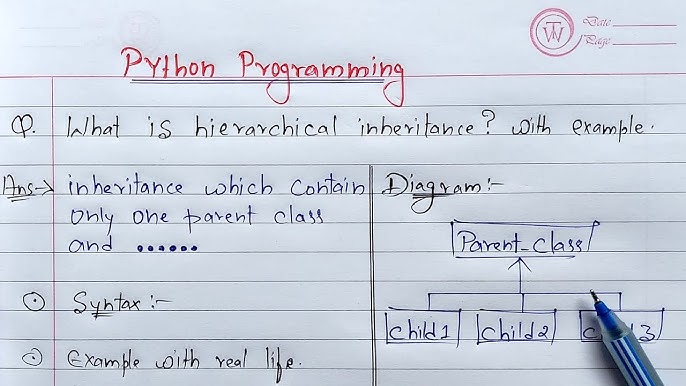 TW
Date
Page
Python Programming
Q. What is hierarchical inheritance? with example.
Ans→ inheritance which contain
only one parent class
and ......
Syntax :-
Example with real life.
Diagram:-
Parent_Class
Child1 Child2